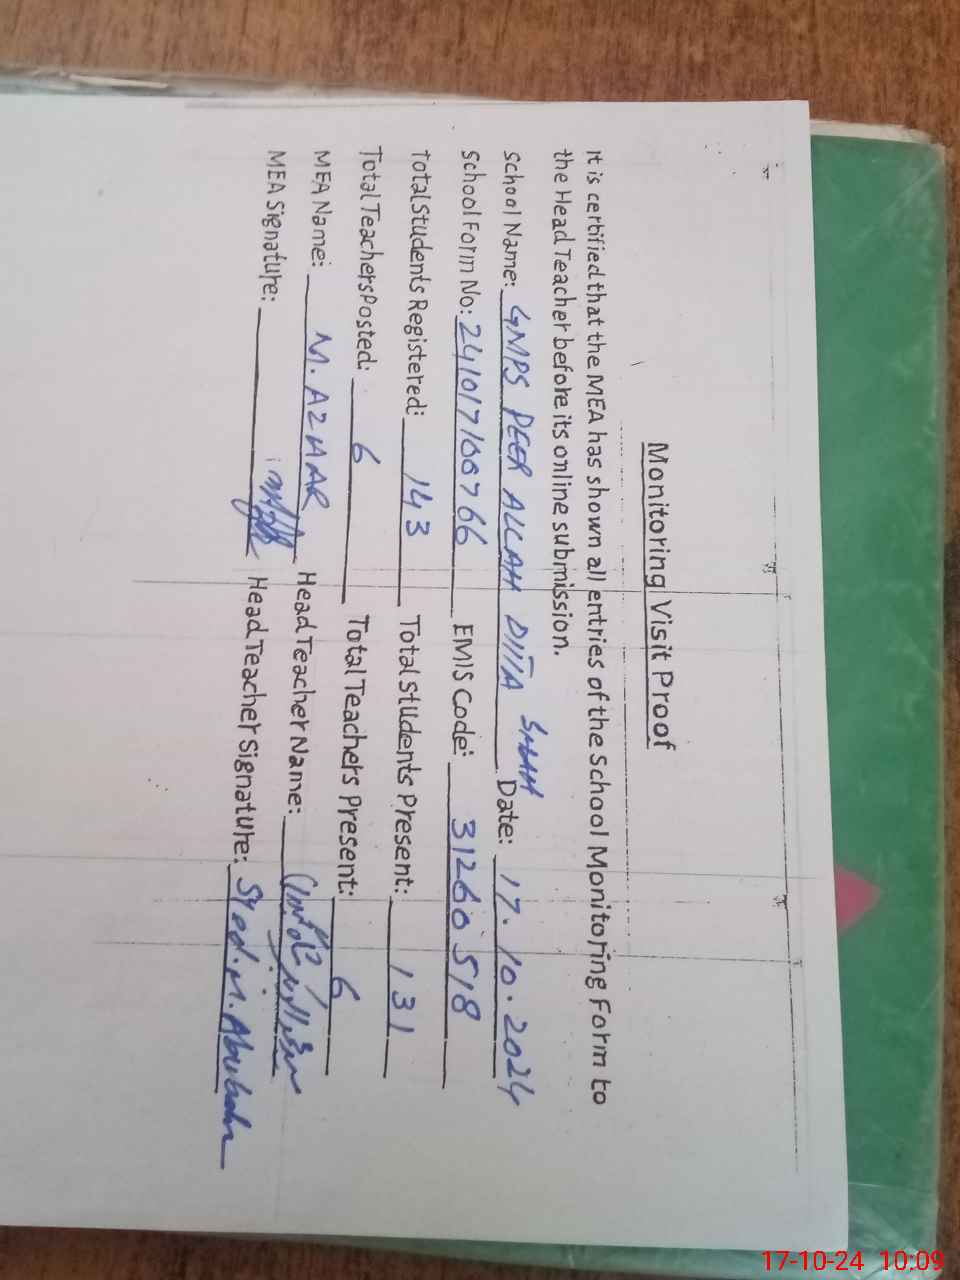 Monitoring Visit Proof
It is certified that the MEA has shown all entries of the School Monitoring Form to
the Head Teacher before its online submission.
School Name: GMPS PEER ALLAH DITTA SHAH Date: 17.10.2024
School Form No: 241017100766 EMIS Code: 31260518
Total Students Registered: 143 Total Students Present: 131
Total Teachers Posted: 6 Total Teachers Present: 6
MEA Name: M. AZHAR Head Teacher Name:
MEA Signature: Head Teacher Signature: Syed. M. Abubakr
17-10-24 10:09